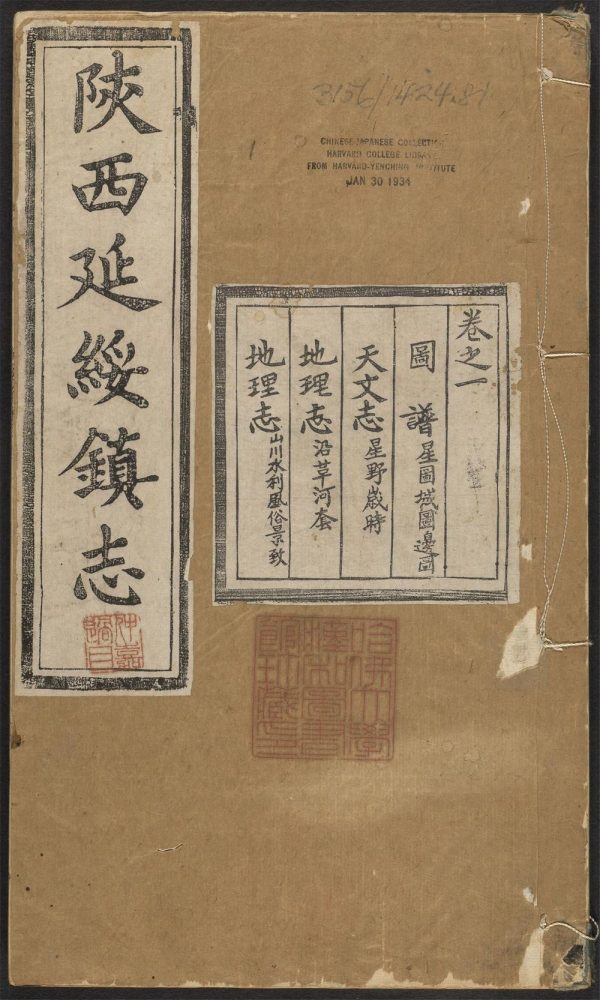 陝西延綏鎮志
3156/1424.81
CHINESE-JAPANESE COLLECTION
HARVARD COLLEGE LIBRARY
FROM HARVARD-YENCHING INSTITUTE
JAN 30 1934
卷之一
圖譜 星圖城圖邊圖
天文志 星野歲時
地理志 沿革河套
地理志 山川水利風俗景致
哈佛大學漢和圖書館珍藏印